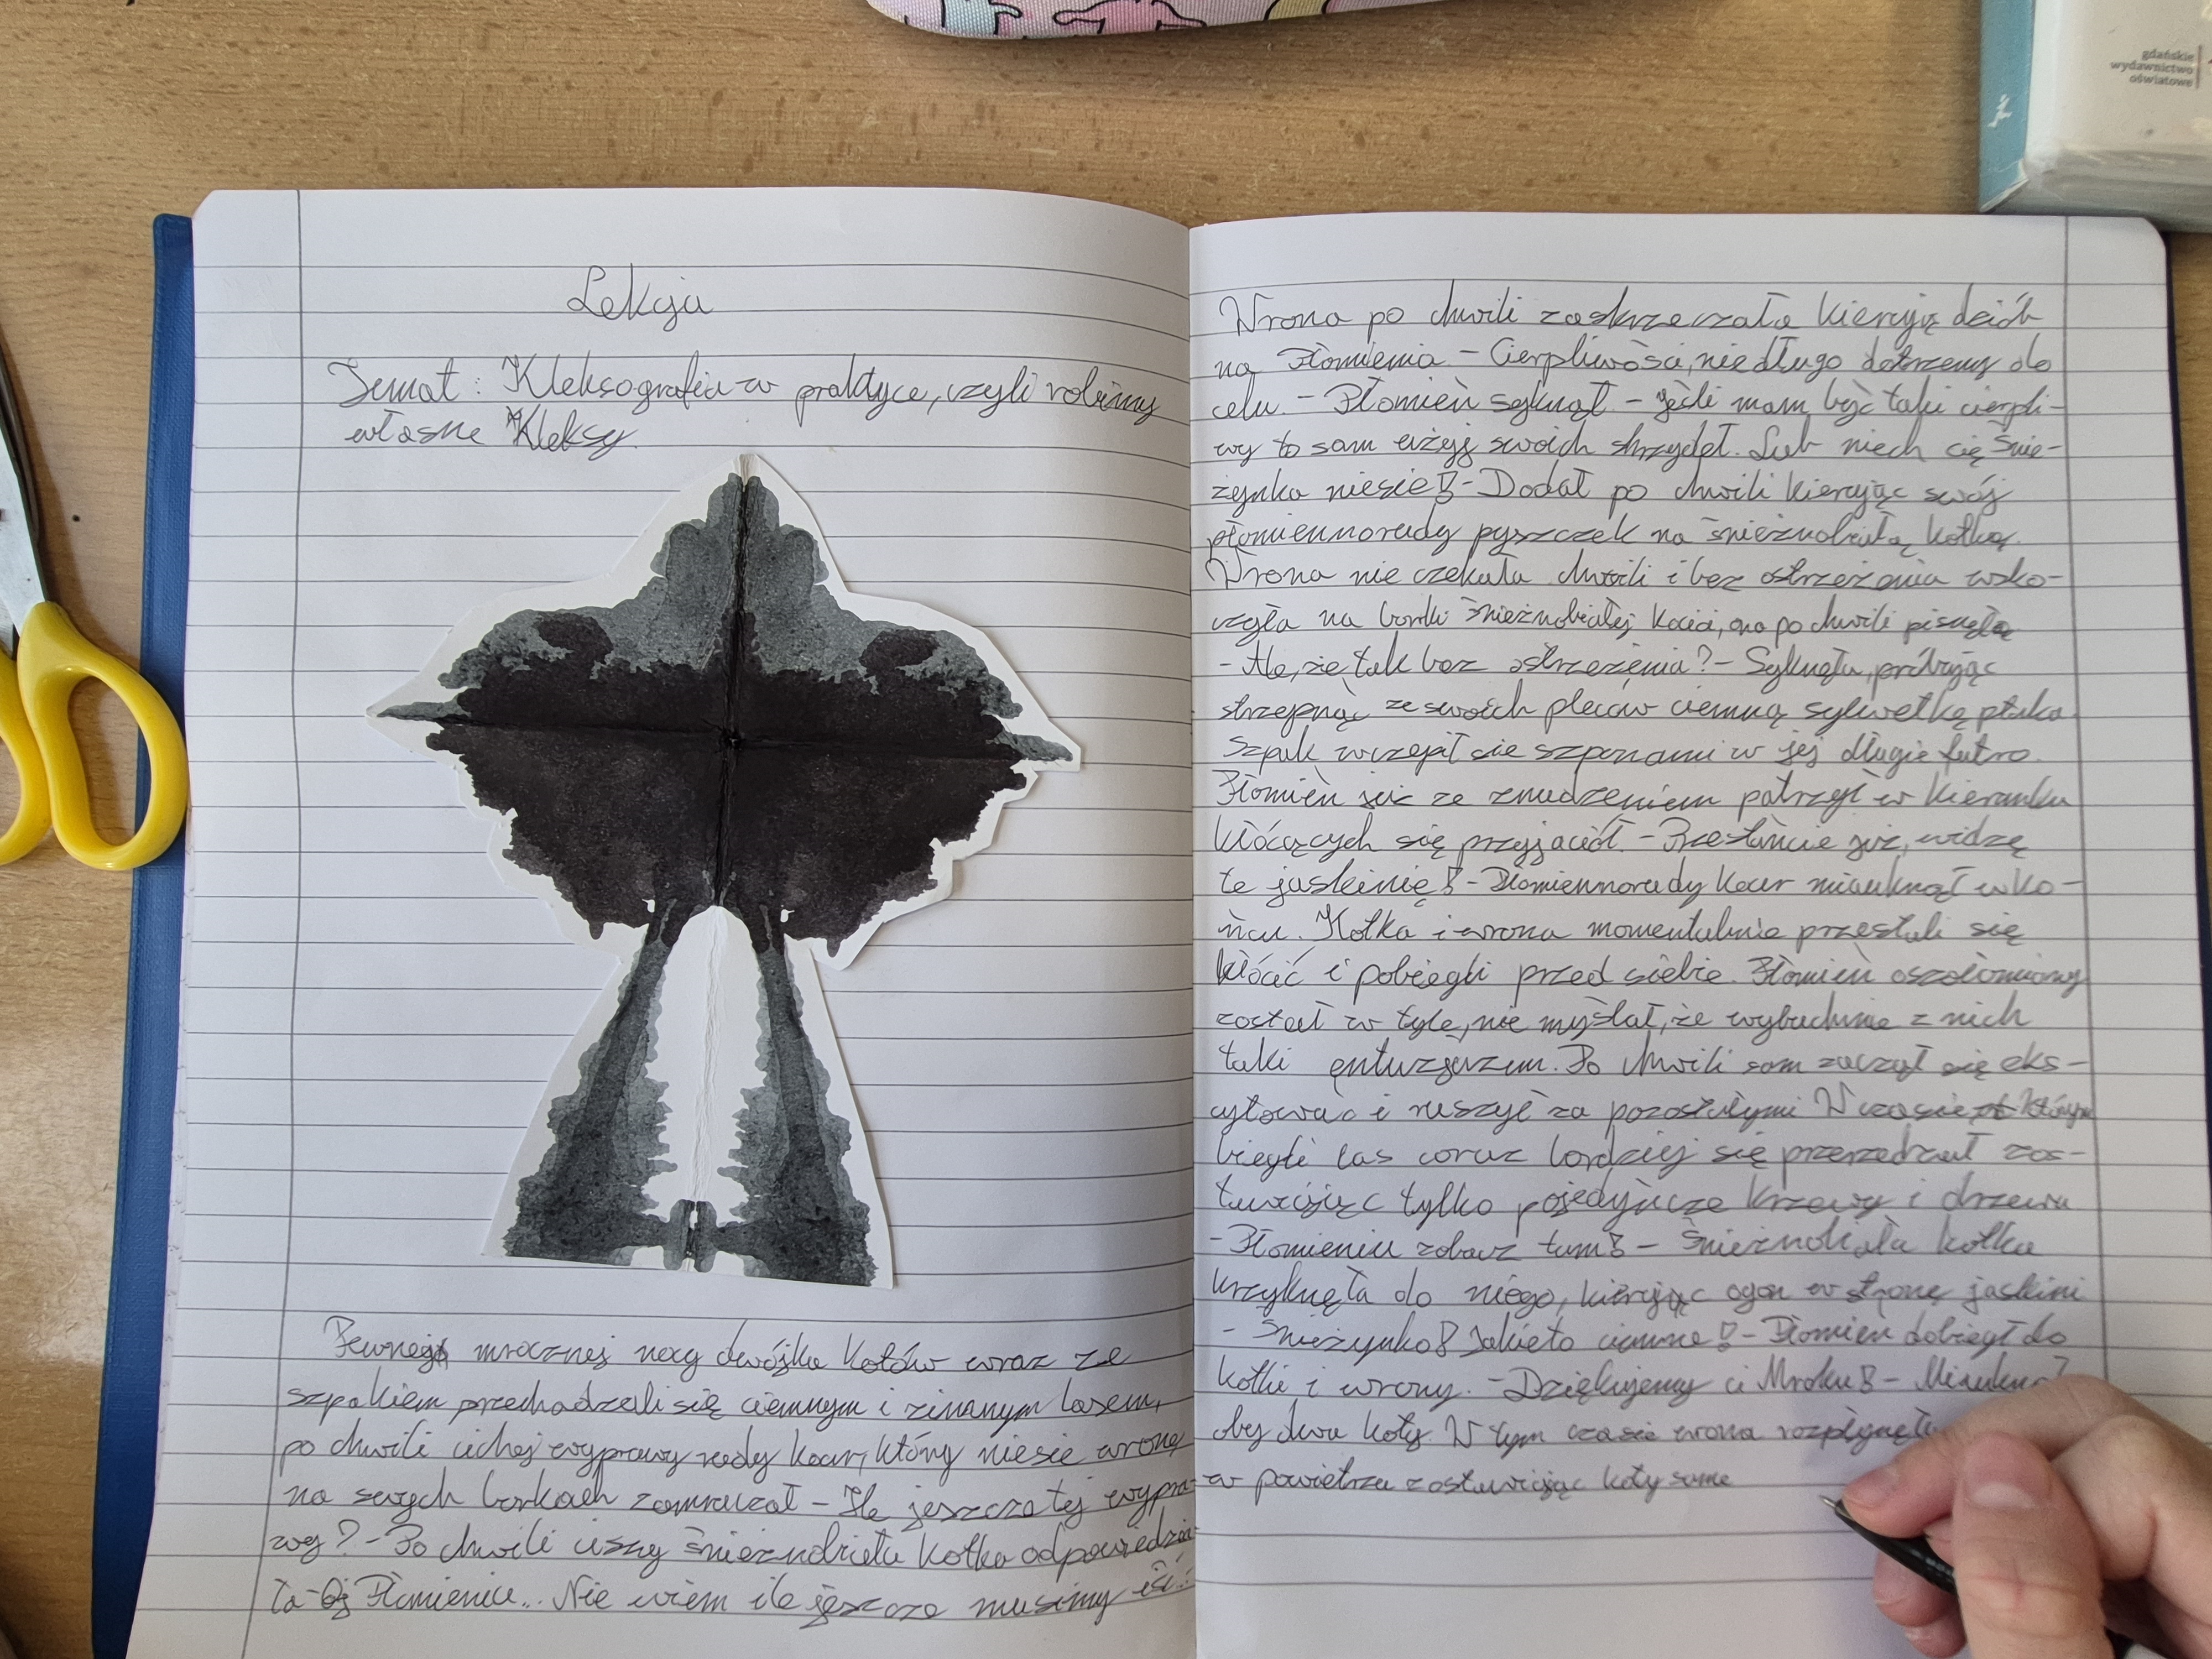 gdańskie
wydawnictwo
oświatowe
Lekcja
Temat: Kleksografia w praktyce, czyli robimy
własne Kleksy.
Pewnej mrocznej nocy dwójka kotów wraz ze
szpakiem przechadzali się ciemnym i zimnym lasem,
po chwili cichej wyprawy rudy kocur, który niesie wronę
na swych barkach zamruczał - Ile jeszcze tej wypra-
wy? - Po chwili ciszy śnieżnobiała kotka odpowiedzia-
ła - Oj Płomieniu... Nie wiem ile jeszcze musimy iść.
Wrona po chwili zaskrzeczała kierując dziób
na Płomienia - Cierpliwości, niedługo dotrzemy do
celu. - Płomień syknął - jeśli mam być taki cierpli-
wy to sam użyj swoich skrzydeł. Lub niech cię Śnie-
żynka niesie! - Dodał po chwili kierując swój
płomiennorudy pyszczek na śnieżnobiałą kotkę.
Wrona nie czekała chwili i bez ostrzeżenia wsko-
czyła na barki śnieżnobiałej kocicy, ona po chwili pisnęła
- Ale, że tak bez ostrzeżenia? - Syknęła, próbując
strzepnąć ze swoich pleców ciemną sylwetkę ptaka
Szpak wczepił się szponami w jej długie futro.
Płomień już ze znudzeniem patrzył w kierunku
kłócących się przyjaciół. - Przestańcie już, widzę
tę jaskinię! - Płomiennorudy kocur miauknął w ko-
ńcu. Kotka i wrona momentalnie przestali się
kłócić i pobiegli przed siebie. Płomień oszołomiony
został w tyle, nie myślał, że wybuchnie z nich
taki entuzjazm. Po chwili sam zaczął się eks-
cytować i ruszył za pozostałymi W czasie którym
biegli las coraz bardziej się przerzedzał zos-
tawiając tylko pojedyńcze krzewy i drzewa
- Płomieniu zobacz tam! - Śnieżnobiała kotka
krzyknęła do niego, kierując ogon w stronę jaskini
- Śnieżynko! Jakie to ciemne! - Płomień dobiegł do
kotki i wrony. - Dziękujemy ci Mroku! -
oby dwa koty. W tym czasie wrona rozpłynęła
w powietrzu zostawiając koty same